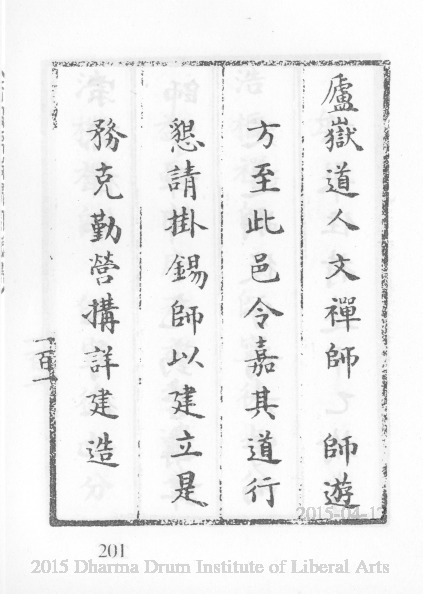 廬嶽道人文禪師　師遊
方至此邑令嘉其道行
懇請掛錫師以建立是
務克勤營搆詳建造
一百一
2015-04-17
201
2015 Dharma Drum Institute of Liberal Arts